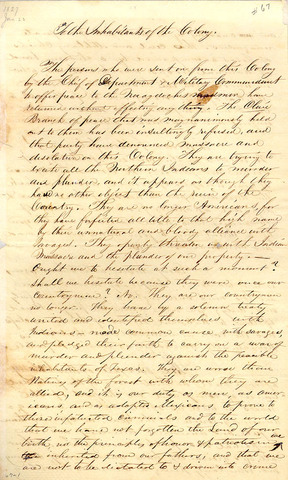 1827
Jan 22
#67
To the Inhabitants of the Colony.
The persons who were sent on from this Colony
by the Chief of Department & Military Commandant
to offer peace to the Nacogdoches madmen have
returned without effecting any thing. The Olive
Branch of peace that was magnanimously held
out to them has been insultingly refused, and
that party have denounced massacre and
desolation on this Colony. They are trying to
excite all the Northern Indians to murder
and plunder, and it appears as though they
have no other object than the ruin of the
Country. They are no longer Americans for
they have forfeited all title to that high name
by their unnatural and bloody alliance with
savages. They openly threaten us with Indian
Massacre and the plunder of our property —
Ought we to hesitate at such a moment?
Shall we hesitate because they were once our
Countrymen? No. They are our Countrymen
no longer. They have by a solemn treaty
united and identified themselves with
Indians — made common cause with savages,
and pledged their faith to carry on a war of
murder and plunder against the peaceable
inhabitants of Texas. They are worse than
Natives of the forest with whom they are
allied, and it is our duty as men, as Amer
icans and as adopted Mexicans, to prove to
these infatuated Criminals and to the world
that we have not forgotten the land of our
birth, nor the principles of honor & patriotism we
inherited from our fathers, and that we
are not to be dictated to & driven into crime